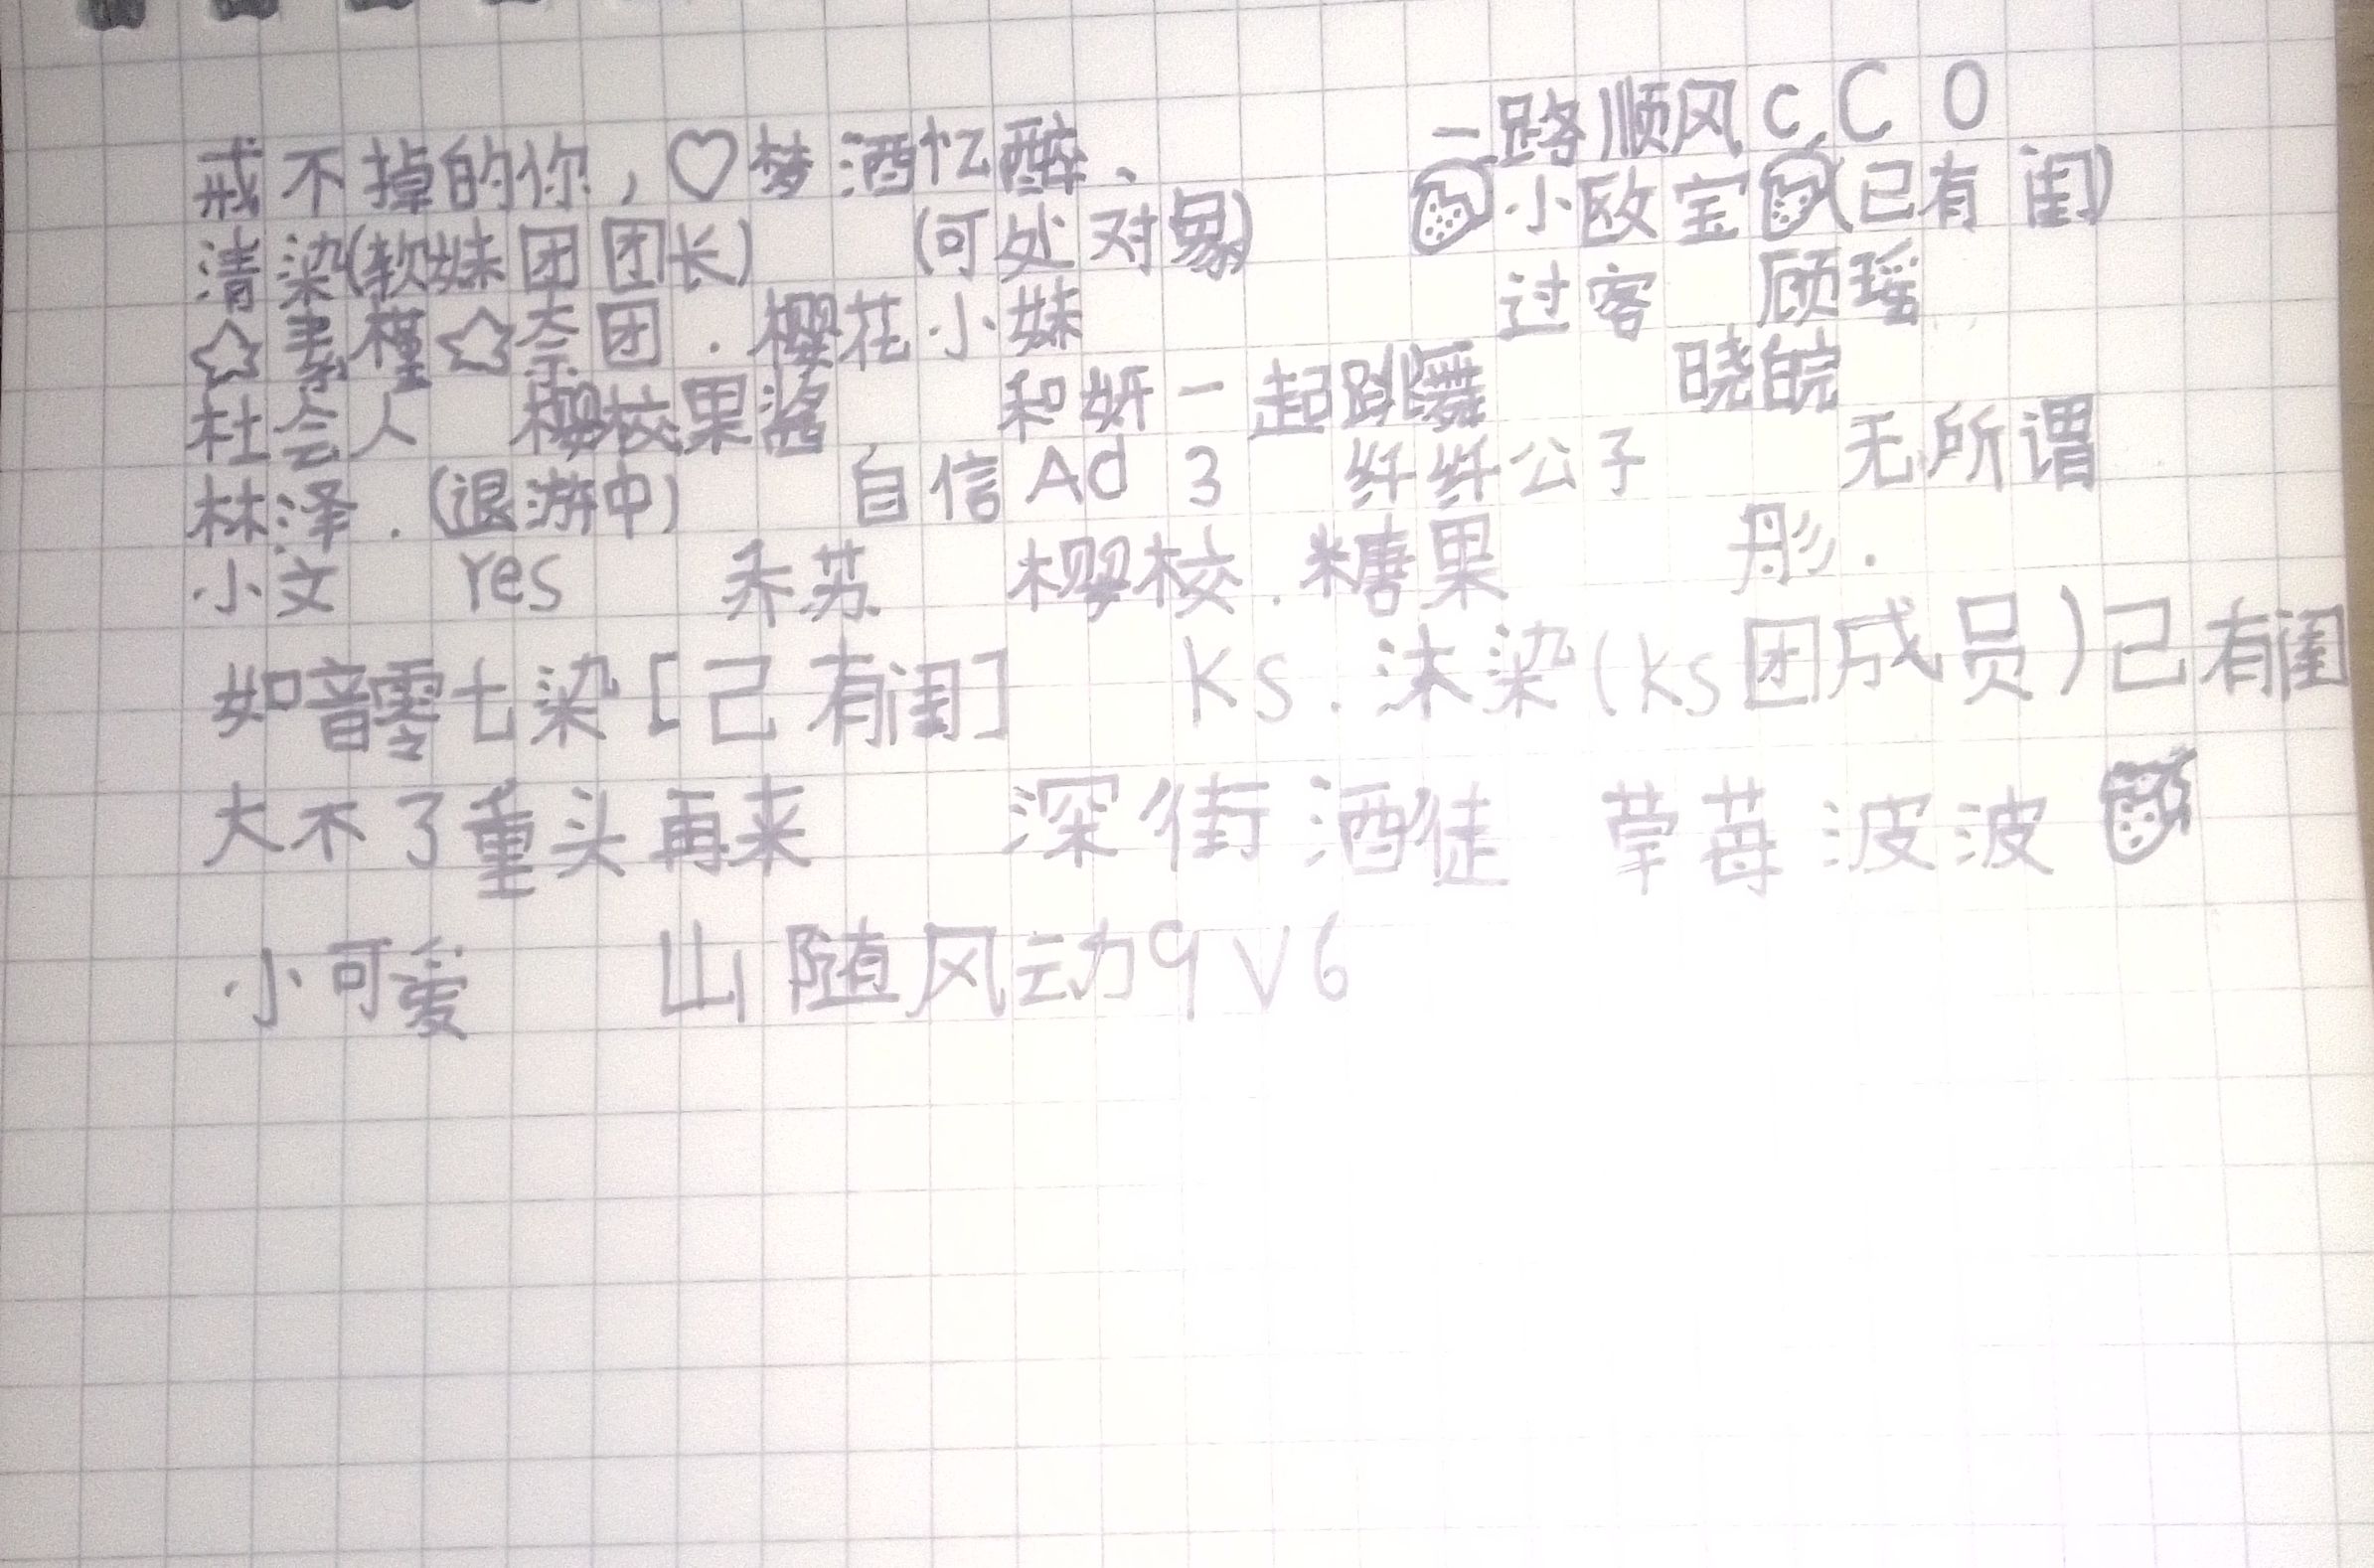 戒不掉的你，♡梦酒忆醉、 一路顺风c.C O
清染(软妹团团长) (可处对象) 小欧宝(已有闺)
☆素槿☆奈团.樱花小妹 过客 顾瑶
社会人 樱校果酱 和妍一起跳舞 晓皖
林泽.(退游中) 自信Ad 3 纤纤公子 无所谓
小文 Yes 乔苏 樱校.糖果 彤.
如音零七染[己有闺] Ks.沐染(ks团成员)己有闺
大不了重头再来 深街酒徒 草莓波波
小可爱 山随风动9V6